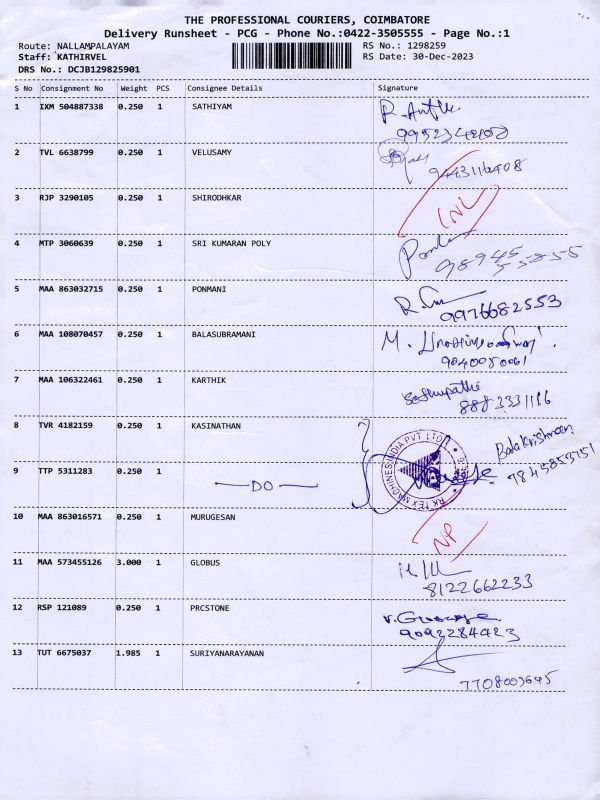 THE PROFESSIONAL COURIERS, COIMBATORE
Delivery Runsheet - PCG - Phone No.:0422-3505555 - Page No.:1
Route: NALLAMPALAYAM RS No.: 1298259
Staff: KATHIRVEL RS Date: 30-Dec-2023
DRS No.: DCJB129825901
S No Consignment No Weight PCS Consignee Details Signature
1 IXM 504887338 0.250 1 SATHIYAM
2 TVL 6638799 0.250 1 VELUSAMY
9443116408
3 RJP 3290105 0.250 1 SHIRODHKAR INL
4 MTP 3060639 0.250 1 SRI KUMARAN POLY
98945 55855
5 MAA 863032715 0.250 1 PONMANI
9976682553
6 MAA 108070457 0.250 1 BALASUBRAMANI M.
9840050061
7 MAA 106322461 0.250 1 KARTHIK Sethupathi
8883331116
8 TVR 4182159 0.250 1 KASINATHAN Balakrishnan
9845853751
9 TTP 5311283 0.250 1 DO
RK TEX MACHINES INDIA PVT LTD
10 MAA 863016571 0.250 1 MURUGESAN NP
11 MAA 573455126 3.000 1 GLOBUS
8122662233
12 RSP 121089 0.250 1 PRCSTONE
9092284423
13 TUT 6675037 1.985 1 SURIYANARAYANAN
7708003645